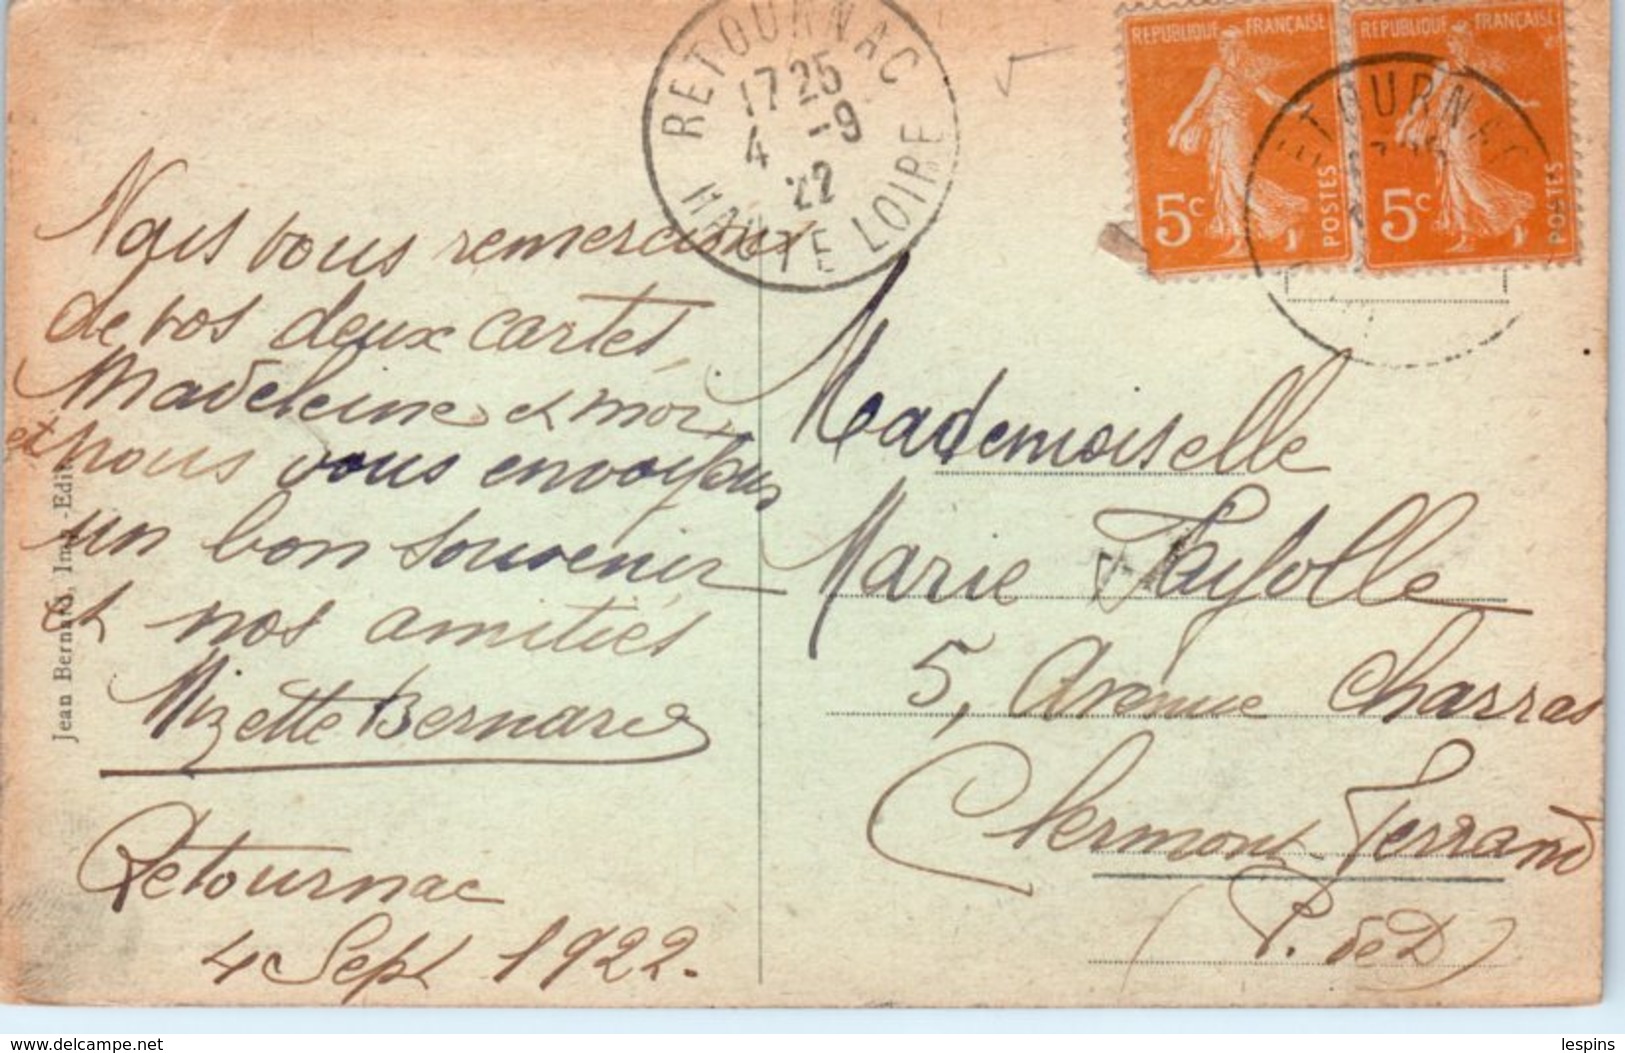 RETOURNAC
17 25
4 -9
22
HAUTE LOIRE
REPUBLIQUE FRANÇAISE
5c
POSTES
REPUBLIQUE FRANÇAISE
5c
POSTES
ETOURNAC
Nous vous remercions
de vos deux cartes,
Madeleine et moi,
et nous vous envoyons
un bon souvenir
et nos amitiés
Mizette Bernard
Retournac
4 Sept 1922.
Jean Bernard, Imp.-Edit
Mademoiselle
Marie Fayolle
5, Avenue Charras
Clermont-Ferrand
(P. de D)
delcampe.net
lespins